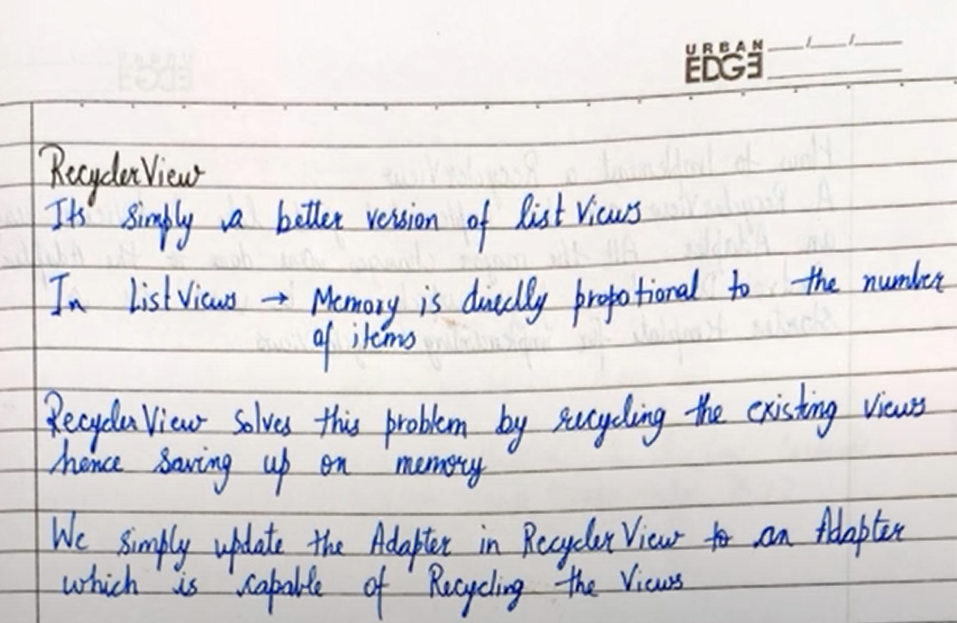 URBAN
EDGE
RecyclerView
Its simply a better version of list Views
In ListViews → Memory is directly propotional to the number
of items
RecyclerView solves this problem by recycling the existing views
hence saving up on memory
We simply update the Adapter in RecyclerView to an Adapter
which is capable of Recycling the Views